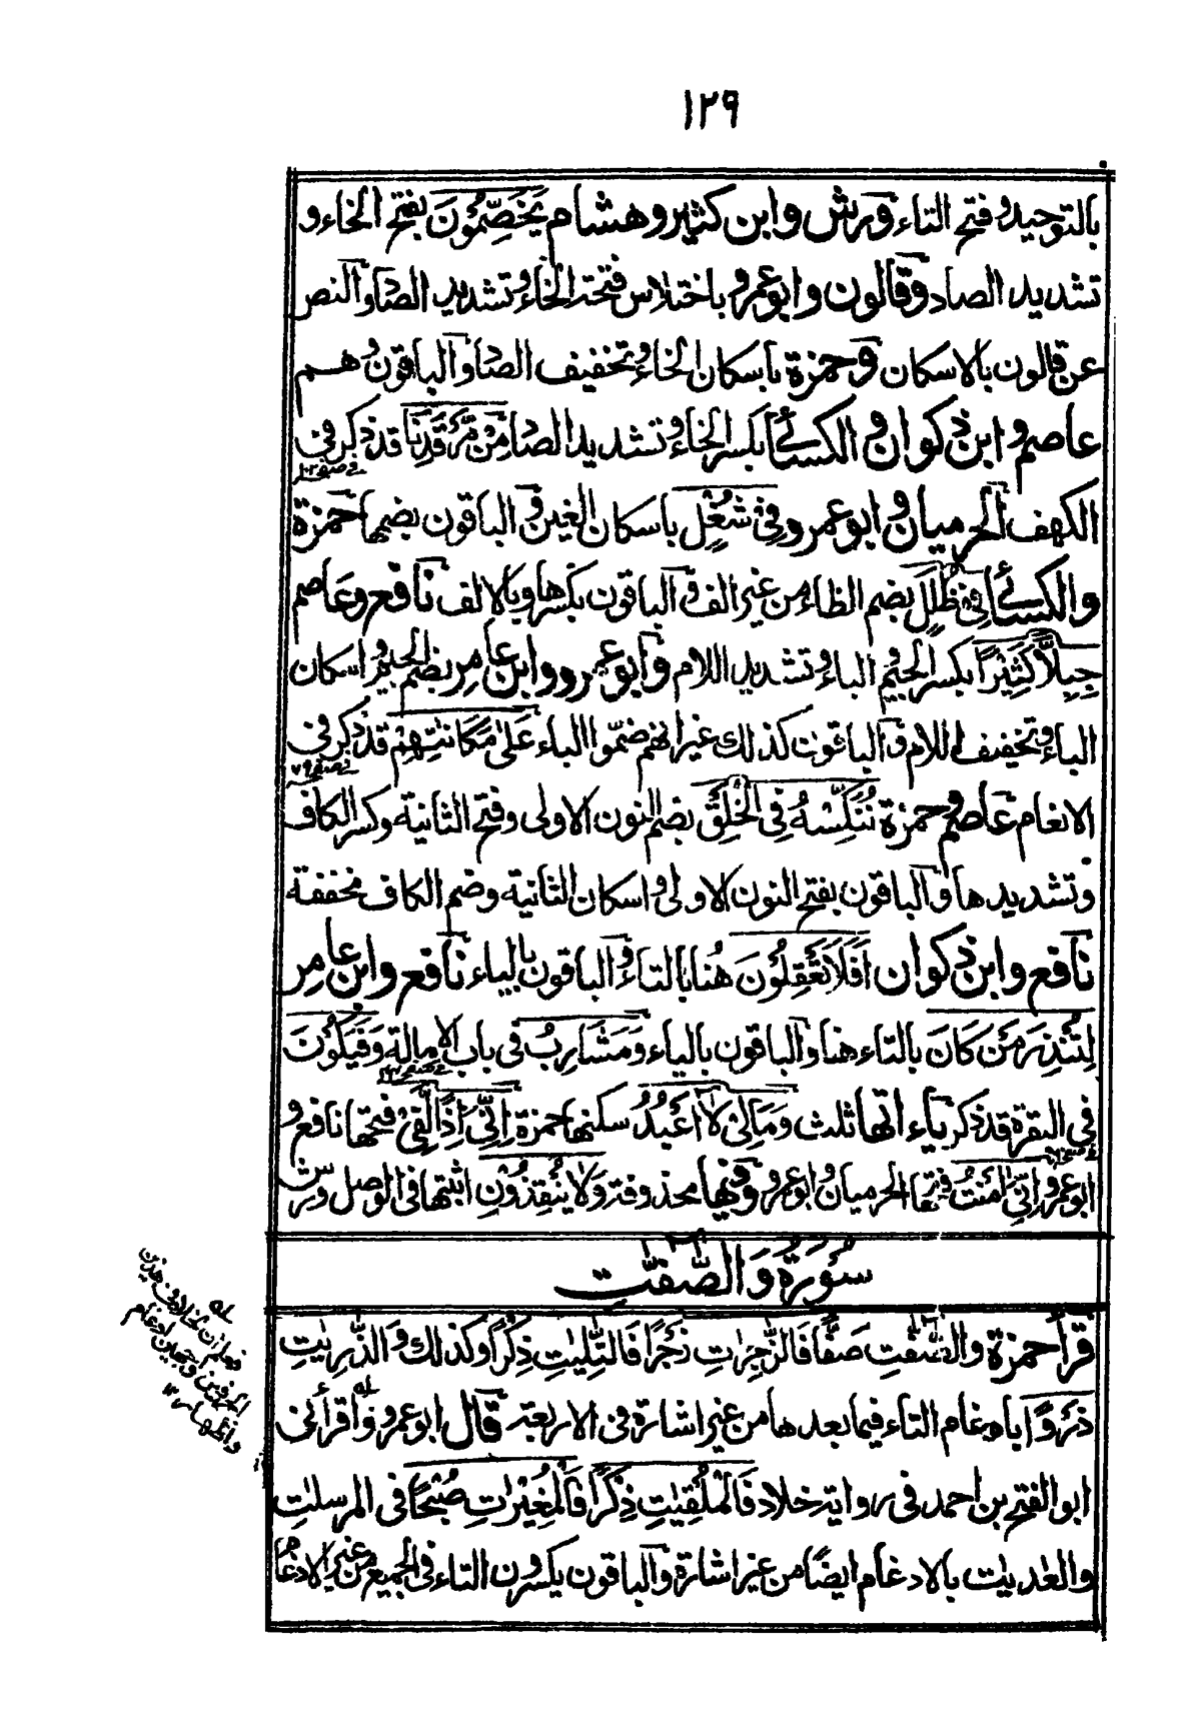 ١٢٩
بالتوحيد وفتح التاء ورش وابن كثير وهشام يَخَصِّمُونَ بفتح الخاء و
تشديد الصاد وقالون وابو عمرو باختلاس فتحة الخاء وتشديد الصاد والنص
عن قالون بالاسكان وحمزة باسكان الخاء وتخفيف الصاد والباقون وهم
عاصم وابن ذكوان والكسائي بكسر الخاء وتشديد الصاد مِنْ مَّرْقَدِنَا قد ذكر في
الكهف الحرميان وابو عمرو فِيْ شُغْلٍ باسكان الغين والباقون بضمها حمزة
والكسائي فِي ظُلَلٍ بضم الظاء من غير الف والباقون بكسرها وبالالف نافع وعاصم
جِبِلًّا كَثِيْرًا بكسر الجيم والباء وتشديد اللام وابو عمرو وابن عامر بضم الجيم واسكان
الباء وتخفيف اللام والباقون كذلك غير انهم ضمّوا الباء عَلٰى مَكَانٰتِهِمْ قد ذكر في
في صفحه ٧٩
الانعام عاصم وحمزة نُنَكِّسْهُ فِي الْخَلْقِ بضم النون الاولى وفتح الثانية وكسر الكاف
وتشديدها والباقون بفتح النون الاولى واسكان الثانية وضم الكاف مخففة
نافع وابن ذكوان اَفَلَا تَعْقِلُوْنَ هُنا بالتاء والباقون بالياء نافع وابن عامر
لِتُنْذِرَ مَنْ كَانَ بالتاء هنا والباقون بالياء وَمَشَارِبُ في باب الامالة وَفَيَكُوْنَ
في البقرة قد ذكر ياءاتها ثلث وَمَالِيَ لَا اَعْبُدُ سكنها حمزة اِنِّيْ اِذًا لَّفِيْ فتحها نافع و
ابو عمرو اِنِّيْ اٰمَنْتُ فتحها الحرميان وابو عمرو وفيها محذوفة وَلَا يُنْقِذُوْنِ اثبتها في الوصل ورش
سُوْرَةُ وَالصّٰٓفّٰت
قرأ حمزة والصّٰٓفّٰتِ صَفًّا فَالزّٰجِرٰتِ زَجْرًا فَالتّٰلِيٰتِ ذِكْرًا وكذلك وَالذّٰرِيٰتِ
ذَرْوًا بادغام التاء فيما بعدها من غير اشارة في الاربعة قال ابو عمرو واقرأني
ابو الفتح بن احمد في رواية خلاد فَالْمُلْقِيٰتِ ذِكْرًا فَالْمُغِيْرٰتِ صُبْحًا في المرسلٰت
والعٰديٰت بالادغام ايضًا من غير اشارة والباقون يكسرون التاء في الجميع من غير الادغام
له
فعلم ان لخلاد في هذين
الحرفين وجهين ادغام
واظهار ١٢